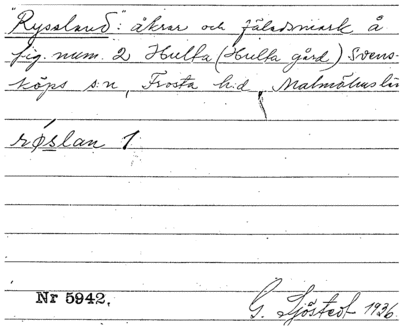 "Ryssland": åkrar och fäladsmark å
fig. num. 2 Hulta (Hulta gård) Svens-
köps s:n, Frosta h:d, Malmöhus län
røslan 1
Nr 5942.
G. Sjöstedt 1936.